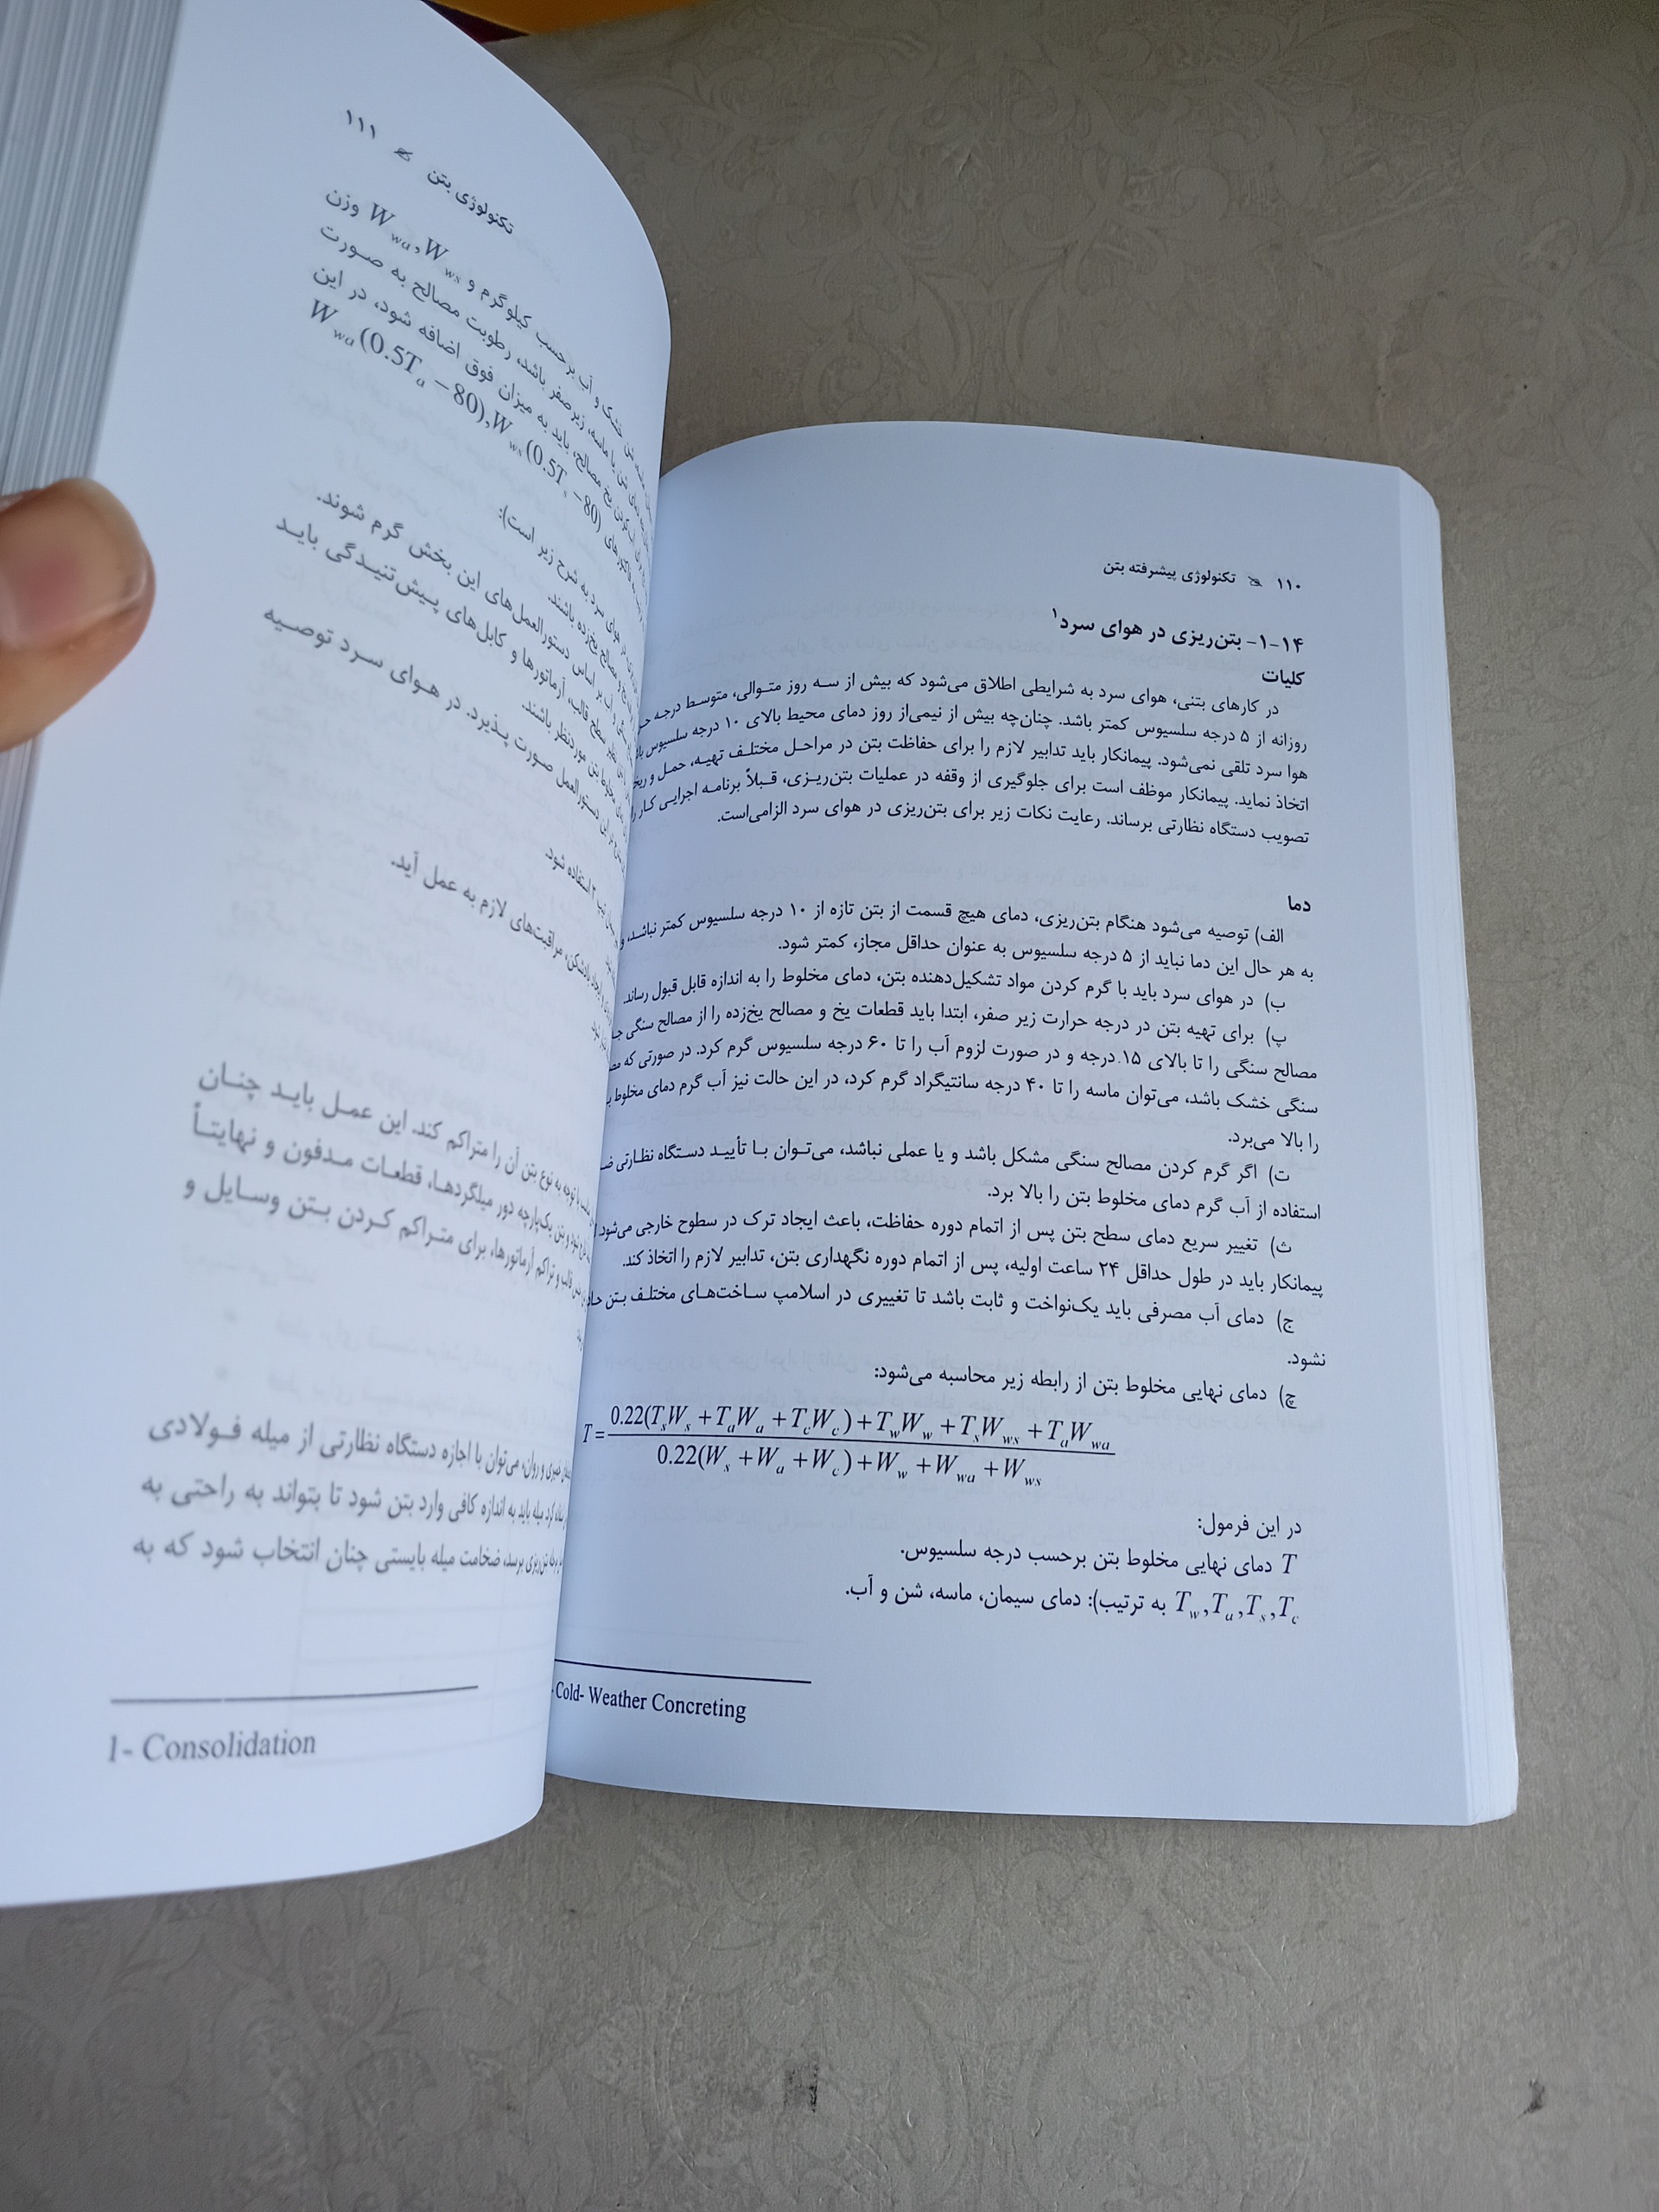 ۱۱۰ تکنولوژی پیشرفته بتن
۱-۱۴- بتن‌ریزی در هوای سرد۱
کلیات
در کارهای بتنی، هوای سرد به شرایطی اطلاق می‌شود که بیش از سه روز متوالی، متوسط درجه
روزانه از ۵ درجه سلسیوس کمتر باشد. چنان‌چه بیش از نیمی‌از روز دمای محیط بالای ۱۰ درجه سلسیوس
هوا سرد تلقی نمی‌شود. پیمانکار باید تدابیر لازم را برای حفاظت بتن در مراحل مختلف تهیه، حمل و
اتخاذ نماید. پیمانکار موظف است برای جلوگیری از وقفه در عملیات بتن‌ریزی، قبلاً برنامه اجرایی کار را
تصویب دستگاه نظارتی برساند. رعایت نکات زیر برای بتن‌ریزی در هوای سرد الزامی‌است.
دما
الف) توصیه می‌شود هنگام بتن‌ریزی، دمای هیچ قسمت از بتن تازه از ۱۰ درجه سلسیوس کمتر نباشد، و
به هر حال این دما نباید از ۵ درجه سلسیوس به عنوان حداقل مجاز، کمتر شود.
ب) در هوای سرد باید با گرم کردن مواد تشکیل‌دهنده بتن، دمای مخلوط را به اندازه قابل قبول رساند.
پ) برای تهیه بتن در درجه حرارت زیر صفر، ابتدا باید قطعات یخ و مصالح یخ‌زده را از مصالح سنگی
مصالح سنگی را تا بالای ۱۵ درجه و در صورت لزوم آب را تا ۶۰ درجه سلسیوس گرم کرد. در صورتی که
سنگی خشک باشد، می‌توان ماسه را تا ۴۰ درجه سانتیگراد گرم کرد، در این حالت نیز آب گرم دمای مخلوط
را بالا می‌برد.
ت) اگر گرم کردن مصالح سنگی مشکل باشد و یا عملی نباشد، می‌توان با تأیید دستگاه نظارتی
استفاده از آب گرم دمای مخلوط بتن را بالا برد.
ث) تغییر سریع دمای سطح بتن پس از اتمام دوره حفاظت، باعث ایجاد ترک در سطوح خارجی می‌شود.
پیمانکار باید در طول حداقل ۲۴ ساعت اولیه، پس از اتمام دوره نگهداری بتن، تدابیر لازم را اتخاذ کند.
ج) دمای آب مصرفی باید یک‌نواخت و ثابت باشد تا تغییری در اسلامپ ساخت‌های مختلف بتن
نشود.
چ) دمای نهایی مخلوط بتن از رابطه زیر محاسبه می‌شود:
T = 0.22(T_sW_s + T_aW_a + T_cW_c) + T_wW_w + T_sW_ws + T_aW_wa
0.22(W_s + W_a + W_c) + W_w + W_wa + W_ws
در این فرمول:
T دمای نهایی مخلوط بتن برحسب درجه سلسیوس.
T_w, T_a, T_s, T_c به ترتیب): دمای سیمان، ماسه، شن و آب.
- Cold- Weather Concreting
تکنولوژی بتن ۱۱۱
کیلوگرم و W_wa, W_ws وزن
رطوبت مصالح به صورت
باید به میزان فوق اضافه شود، در این
W_wa(0.5T_a − 80), W_ws(0.5T_s − 80)
به شرح زیر است):
یخ‌زده باشند.
دستورالعمل‌های این بخش گرم شوند.
سطح قالب، آرماتورها و کابل‌های پیش‌تنیدگی باید
موردنظر باشند.
دستورالعمل صورت پذیرد. در هوای سرد توصیه
استفاده شود.
مراقبت‌های لازم به عمل آید.
با توجه به نوع بتن آن را متراکم کند. این عمل باید چنان
بتن یک‌پارچه دور میلگردها، قطعات مدفون و نهایتاً
قالب و تراکم آرماتورها، برای متراکم کردن بتن وسایل و
و روان، می‌توان با اجازه دستگاه نظارتی از میله فولادی
میله باید به اندازه کافی وارد بتن شود تا بتواند به راحتی به
برسد، ضخامت میله بایستی چنان انتخاب شود که به
1- Consolidation